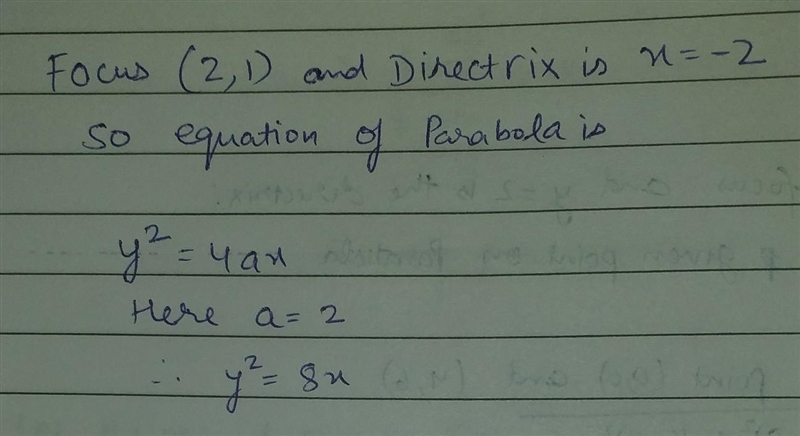 Focus (2,1) and Directrix is x=-2
So equation of Parabola is
y² = 4ax
Here a = 2
∴ y² = 8x